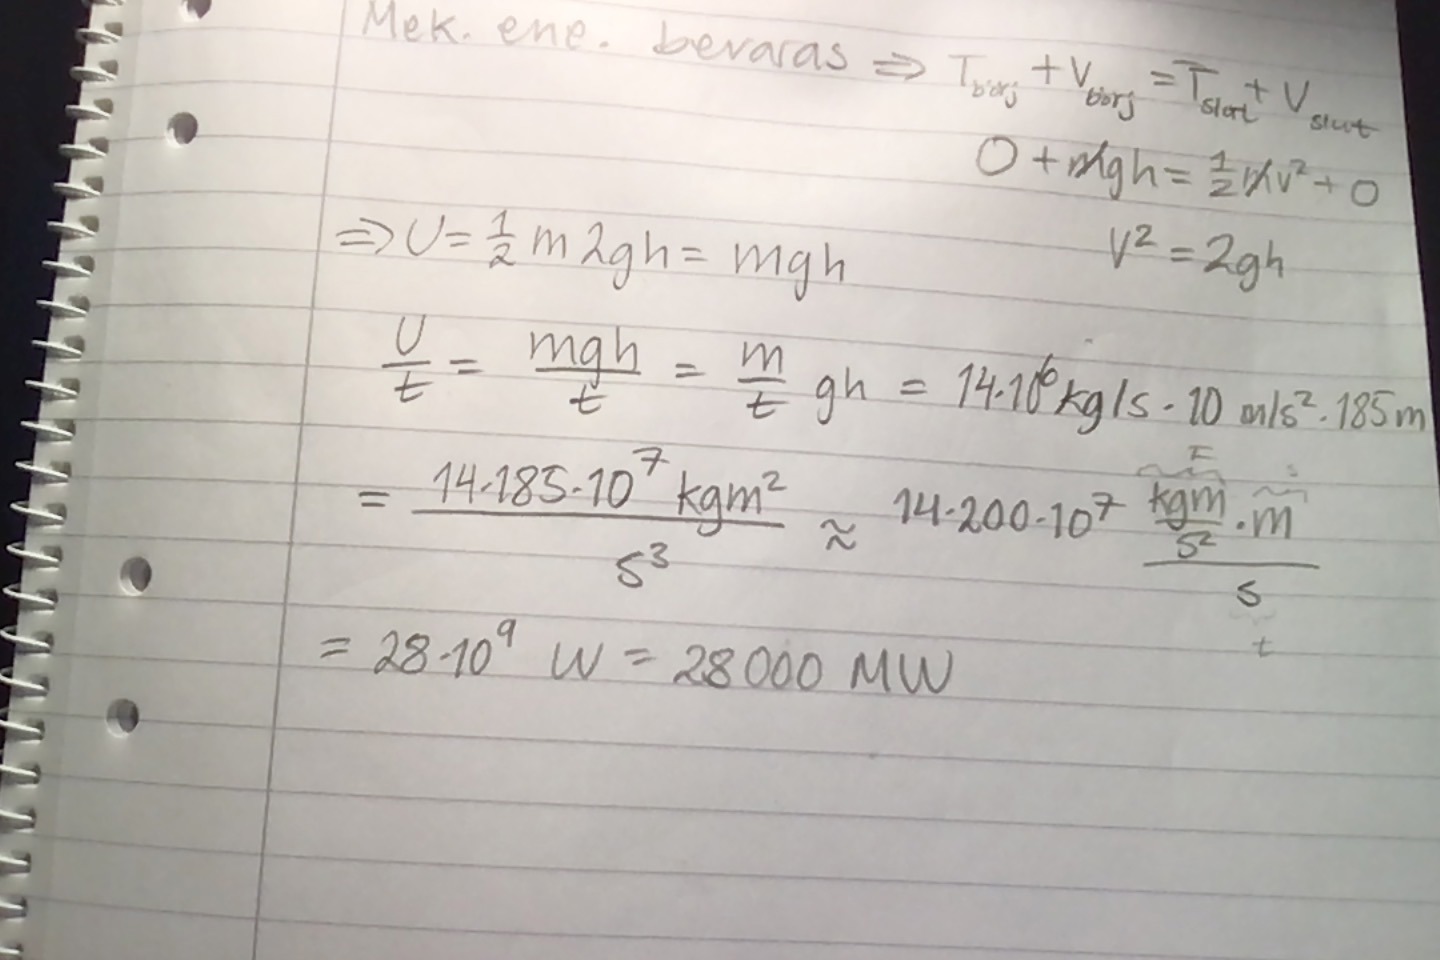 Mek. ene. bevaras ⇒ T_börj + V_börj = T_slut + V_slut
0 + mgh = 1/2 mv² + 0
⇒ U = 1/2 m2gh = mgh
V² = 2gh
U/t = mgh/t = m/t gh = 14·10⁶ kg/s · 10 m/s² · 185 m
= 14·185·10⁷ kgm² / s³ ≈ 14·200·10⁷ (kgm/s² · m) / s
F s
t
= 28·10⁹ W = 28000 MW